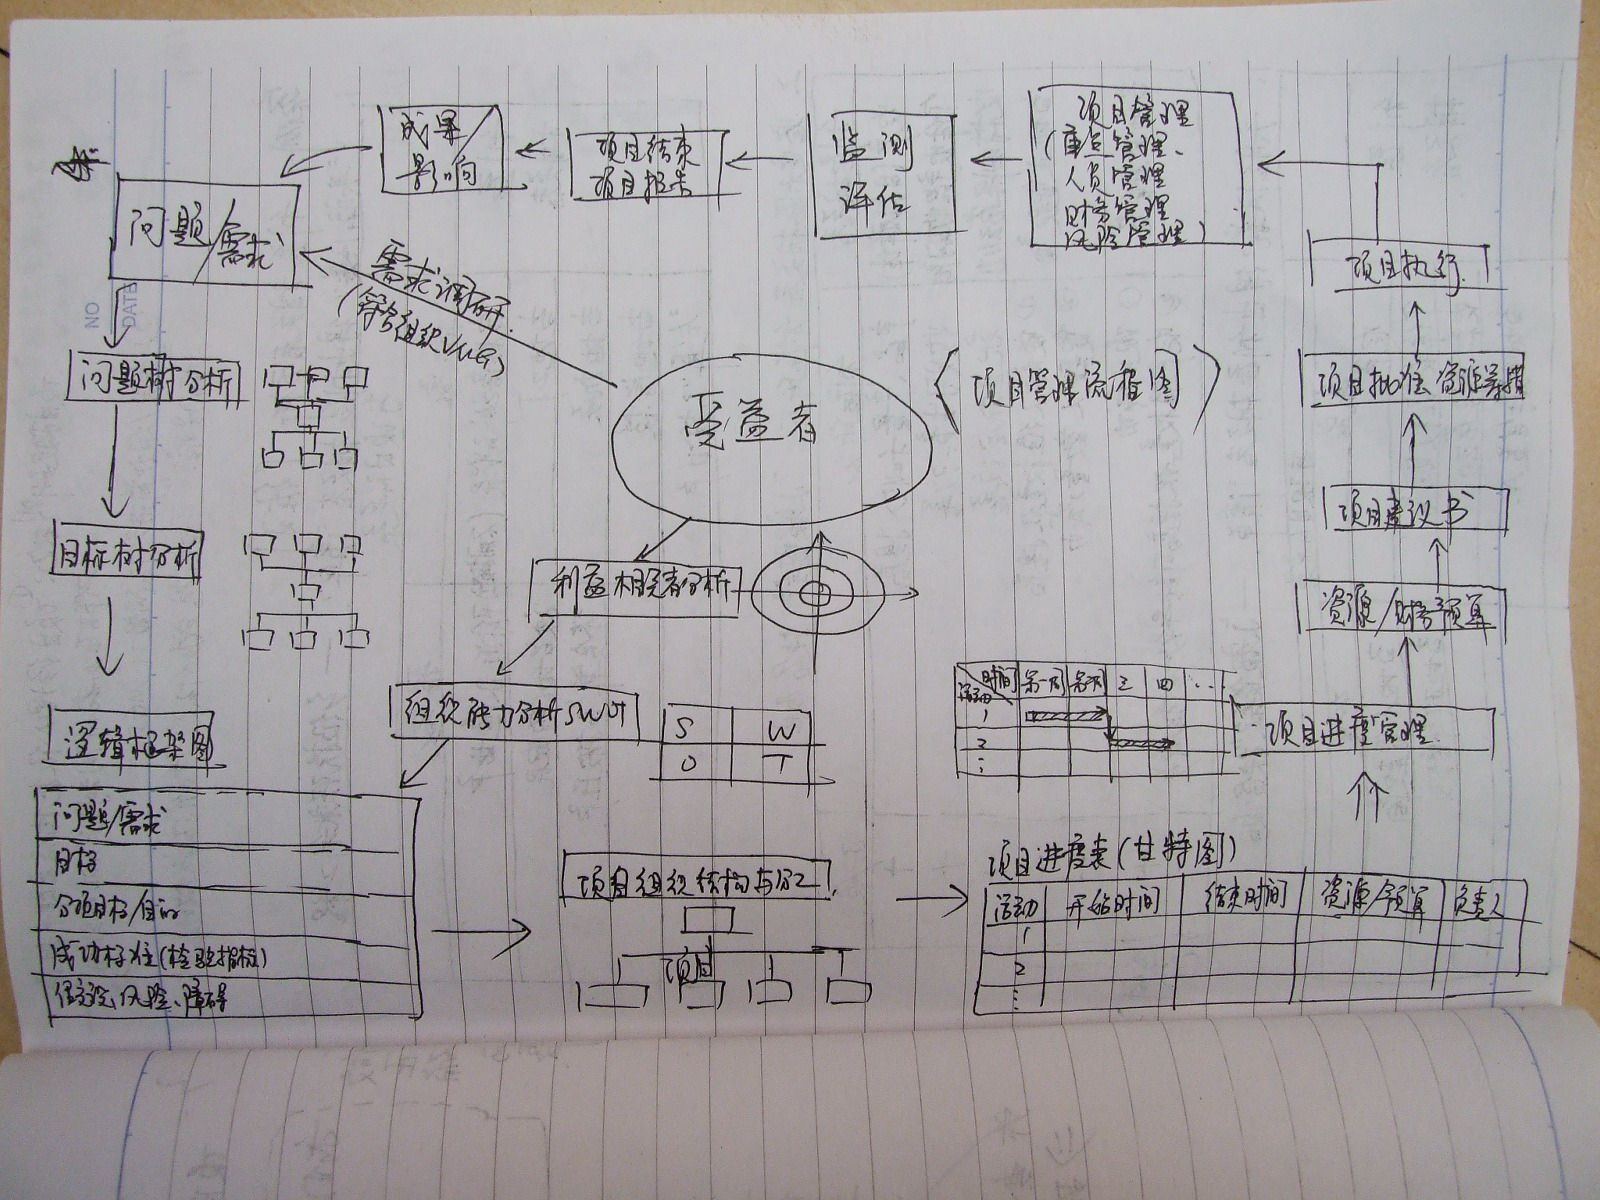 成果/
影响
项目结束
项目报告
监测
评估
项目管理
人员管理
财务管理
风险管理)
问题
/需求
需求调研
(符合组织VMG)
项目执行
NO
DATE
问题树分析
受益者
项目管理流程图
项目批准 资源筹措
项目建议书
目标树分析
利益相关者分析
资源/财务预算
组织能力分析SWOT
S W
O T
时间
活动
第一周 第二周 三 四 ...
1
2
⋮
项目进度管理
逻辑框架图
问题/需求
目标
分项目标/目的
成功标准(检验指标)
假设、风险、障碍
项目组织结构与分工
项目
项目进度表(甘特图)
活动 开始时间 结束时间 资源/预算 负责人
1
2
⋮